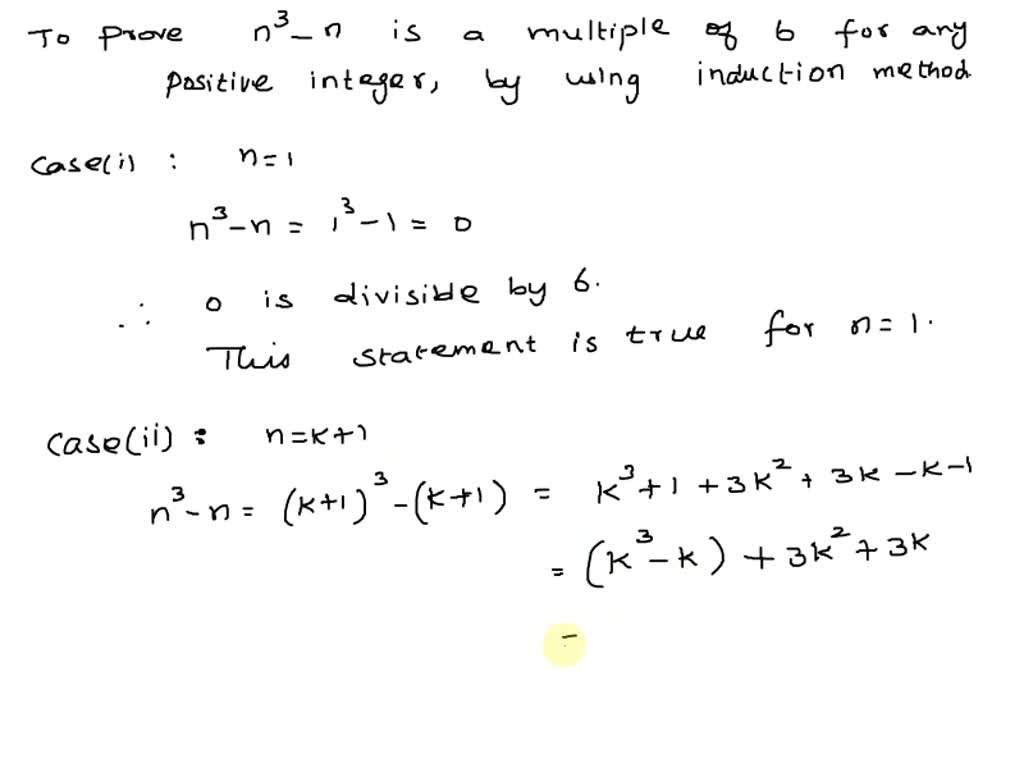 To prove n³-n is a multiple of 6 for any
positive integer, by using induction method
case(i) : n=1
n³-n = 1³-1 = 0
∴ 0 is divisible by 6.
This statement is true for n=1.
case(ii) : n=k+1
n³-n = (k+1)³-(k+1) = k³+1+3k²+3k-k-1
= (k³-k)+3k²+3k
=